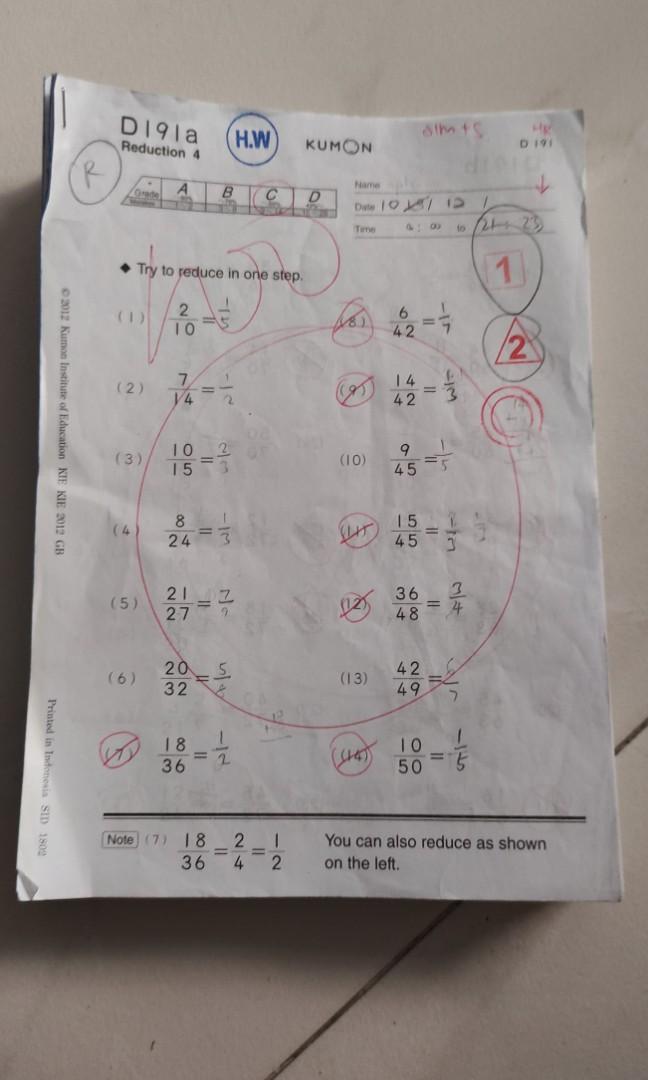 D191a
Reduction 4
H.W
KUMON
D 191
R
Grade A B C D
Name
Date 10 / 12 /
Time : to 21 : 23
1
2
◆ Try to reduce in one step.
(1) 2/10 = 1/5
(2) 7/14 = 1/2
(3) 10/15 = 2/3
(4) 8/24 = 1/3
(5) 21/27 = 7/9
(6) 20/32 = 5/8
(7) 18/36 = 1/2
(8) 6/42 = 1/7
(9) 14/42 = 1/3
(10) 9/45 = 1/5
(11) 15/45 = 1/3
(12) 36/48 = 3/4
(13) 42/49 = 6/7
(14) 10/50 = 1/5
Note (7) 18/36 = 2/4 = 1/2 You can also reduce as shown
on the left.
© 2012 Kumon Institute of Education KIE KIE 2012 GB
Printed in Indonesia SID 1802